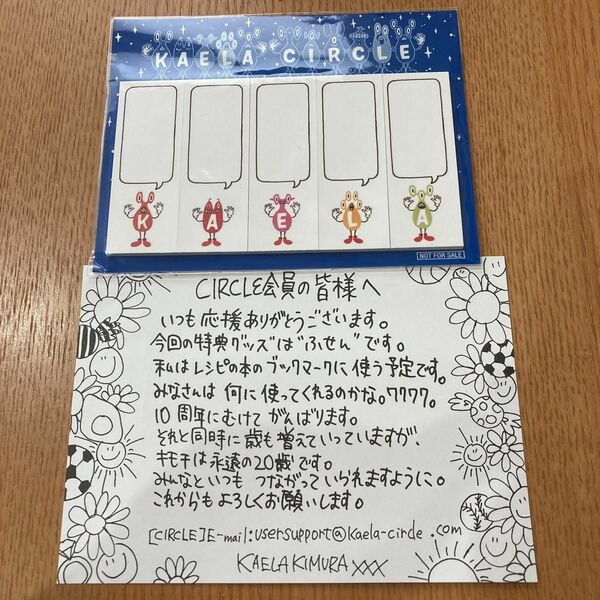 KAELA CIRCLE
K A E L A
NOT FOR SALE
CIRCLE会員の皆様へ
いつも応援ありがとうございます。
今回の特典グッズは"ふせん"です。
私はレシピの本のブックマークに使う予定です。
みなさんは何に使ってくれるのかな。ワクワク。
10周年にむけてがんばります。
それと同時に歳も増えていっていますが、
キモチは永遠の20歳です。
みんなといつもつながっていられますように。
これからもよろしくお願いします。
[CIRCLE]E-mail:usersupport@kaela-circle.com
KAELA KIMURA XXX